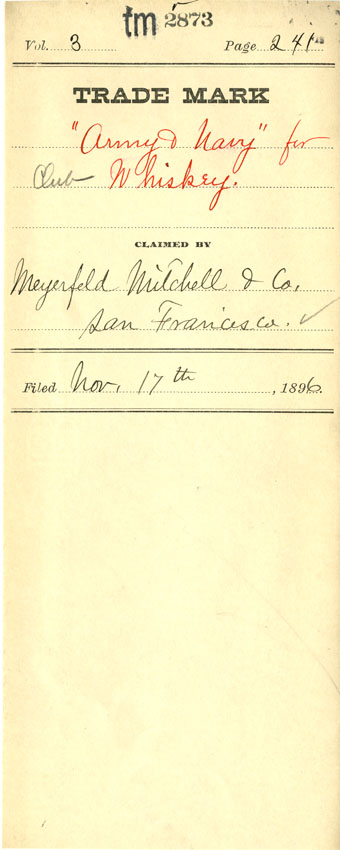 tm 2873
Vol. 3 Page 241
TRADE MARK
"Army & Navy" for
Club Whiskey.
CLAIMED BY
Meyerfeld Mitchell & Co.
San Francisco. ✓
Filed Nov. 17th, 1896.